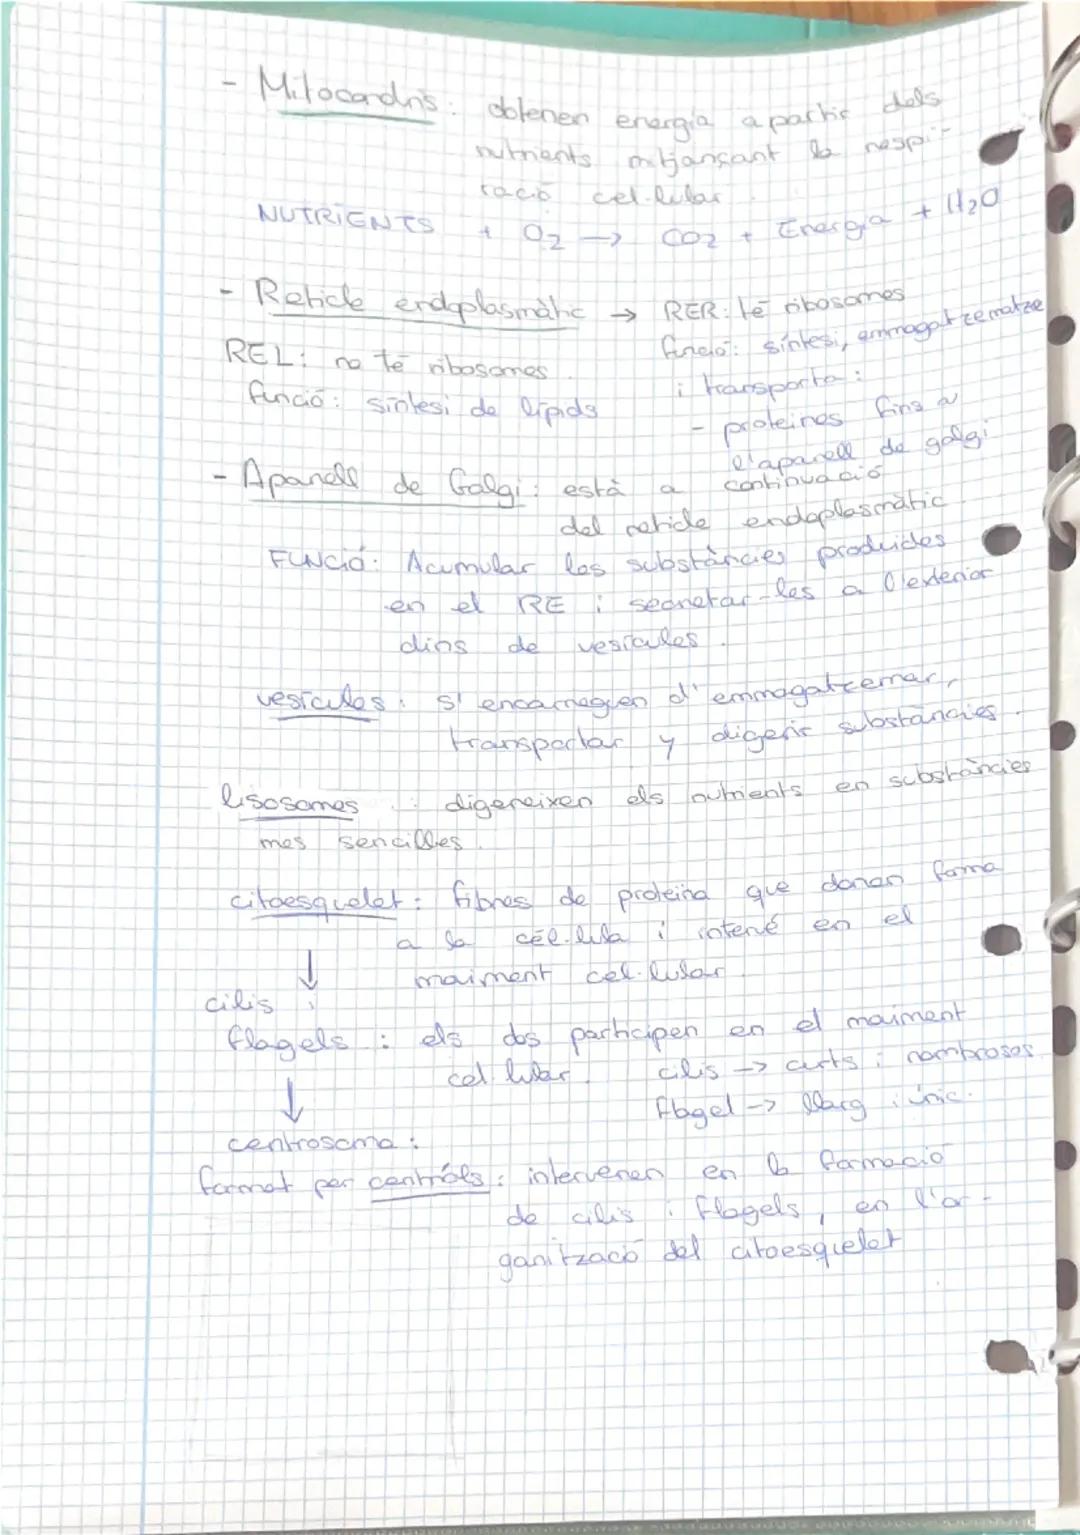 - Mitocondris: obtenen energia a partir dels
nutrients mitjançant la respi-
ració cel·lular
NUTRIENTS + O2 → CO2 + Energia + H2O
- Reticle endoplasmàtic → RER: té ribosomes
funció: síntesi, emmagatzematze
i transporta:
- proteines fins a
l'aparell de golgi
REL: no té ribosomes.
funció: síntesi de lípids
- Aparell de Golgi: està a continuació
del reticle endoplasmàtic.
FUNCIÓ: Acumular les substàncies produides
en el RE i secretar-les a l'exterior
dins de vesícules.
vesícules: s'encarreguen d'emmagatzemar,
transportar y digerir substàncies.
lisosomes: digereixen els nutrients en substàncies
mes sencilles.
citoesquelet: fibres de proteïna que donen forma
a la cèl·lula i intervé en el
moviment cel·lular.
↓
cilis i
flagels: els dos participen en el moviment
cel·lular.
cilis → curts i nombrosos
flagel → llarg i únic.
↓
centrosoma:
format per centríols: intervenen en la formació
de cilis i flagels, en l'or-
ganització del citoesquelet